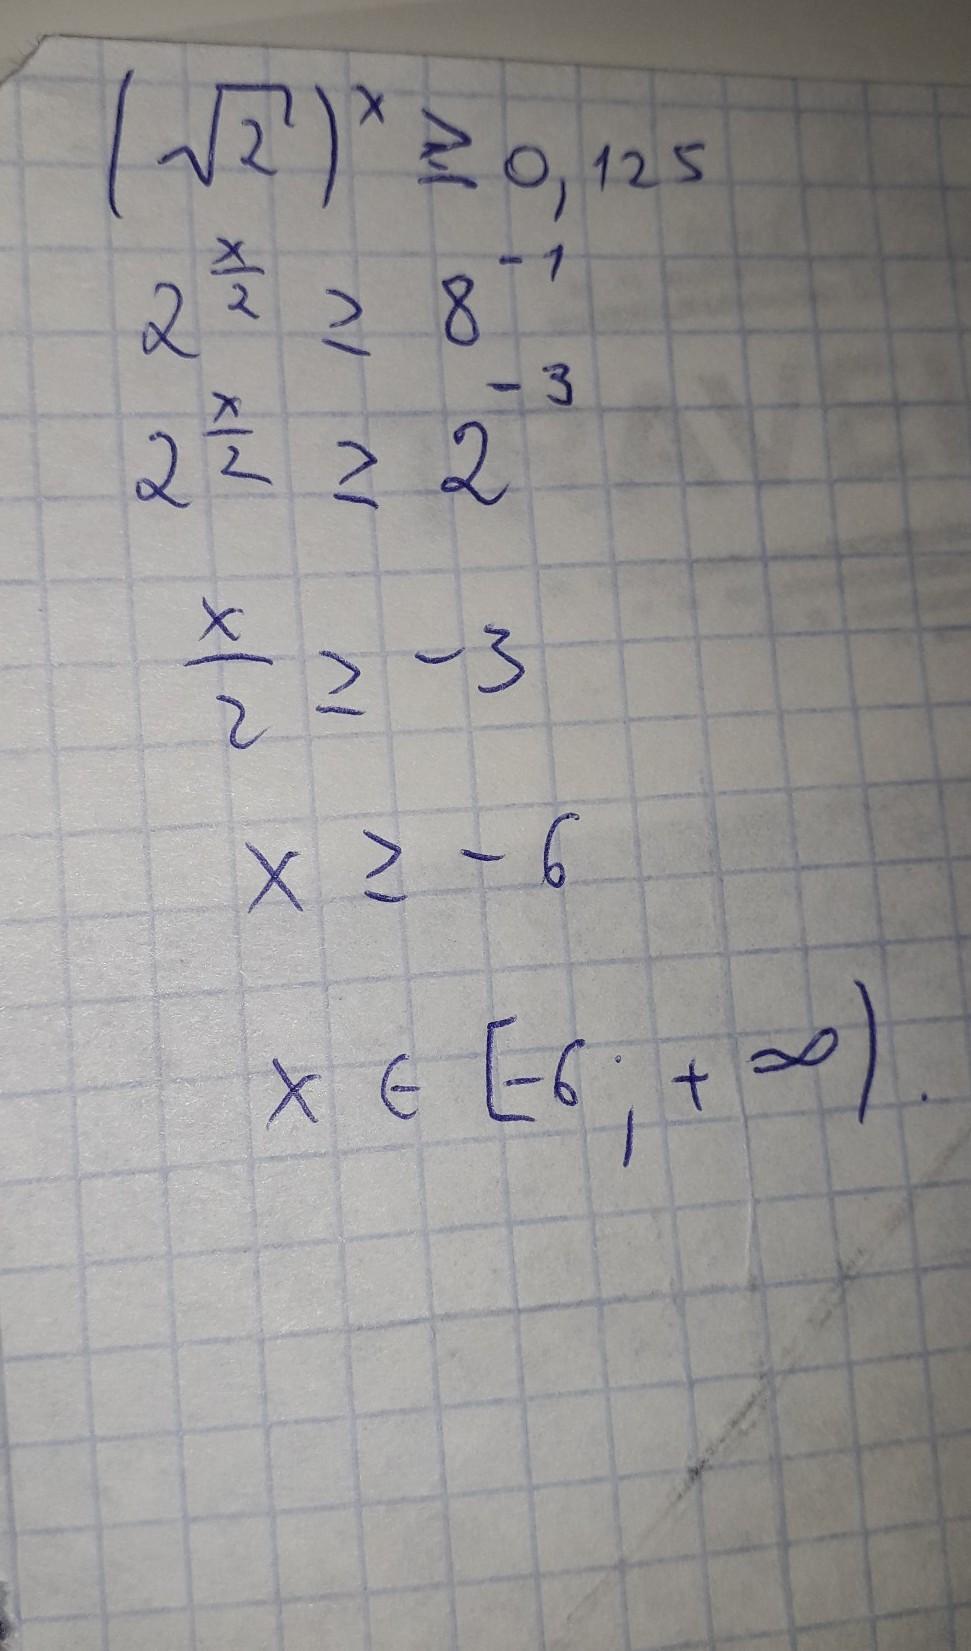 (√2)^x ≥ 0,125
2^(x/2) ≥ 8^-1
2^(x/2) ≥ 2^-3
x/2 ≥ -3
x ≥ -6
x ∈ [-6; +∞).